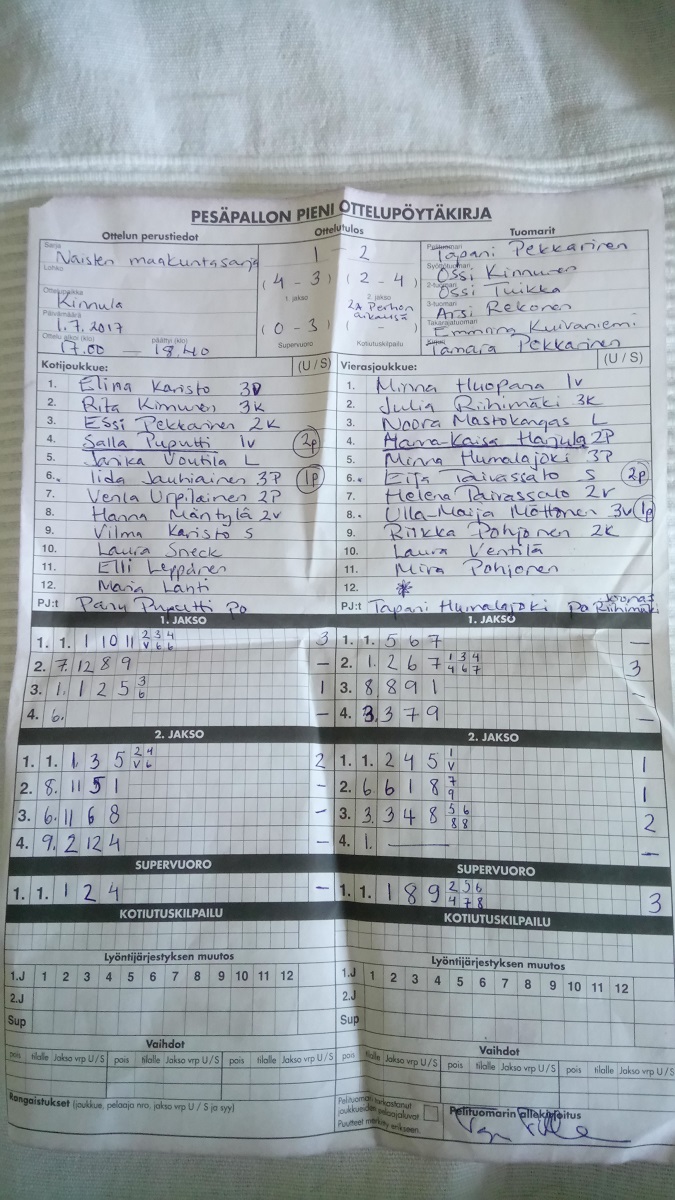 PESÄPALLON PIENI OTTELUPÖYTÄKIRJA
Ottelun perustiedot Ottelutulos Tuomarit
Sarja Naisten maakuntasarja 1 – 2 Pelituomari Tapani Pekkarinen
Lohko (4 – 3) (2 – 4) Syöttötuomari Ossi Kinnunen
1. jakso 2. jakso 2-tuomari Ossi Tuikka
Ottelupaikka Kinnula 2A Perhon aikalisä 3-tuomari Arsi Rekonen
Päivämäärä 1.7.2017 (0 – 3) ( – ) Takarajatuomari Emmina Kuivaniemi
Ottelu alkoi (klo) 17.00 — päättyi (klo) 18.40 Supervuoro Kotiutuskilpailu Tamara Pekkarinen
Kotijoukkue: (U / S) Vierasjoukkue: (U / S)
1. Elina Karisto 3V 1. Minna Huopana 1v
2. Rita Kinnunen 3K 2. Julia Riihimäki 3K
3. Essi Pekkarinen 2K 3. Noora Mastokangas L
4. Salla Puputti 1v 2p 4. Hanna-Kaisa Harjula 2P
5. Janika Voutila L 5. Minna Humalajoki 3P
6. Iida Jauhiainen 3P 1p 6. Eija Taivassalo S 2p
7. Venla Urpilainen 2P 7. Helena Taivassalo 2v
8. Hanna Mäntylä 2v 8. Ulla-Maija Möttönen 3v 1p
9. Vilma Karisto S 9. Riikka Pohjonen 2K
10. Laura Sneck 10. Laura Ventilä
11. Elli Leppänen 11. Mira Pohjonen
12. Maria Lahti 12. *
PJ:t Pasu Puputti PO PJ:t Tapani Humalajoki PO Joonas Riihimäki
1. JAKSO 1. JAKSO
1. 1. 1 10 11 2 3 4 V 6 6 3 1. 1. 5 6 7 –
2. 7. 12 8 9 – 2. 1. 2 6 7 1 3 4 4 6 7 3
3. 1. 1 2 5 3 6 1 3. 8 8 9 1 –
4. 6. – 4. 3. 3 7 9 –
2. JAKSO 2. JAKSO
1. 1. 1. 3 5 2 4 V 6 2 1. 1. 2 4 5 1 V 1
2. 8. 11 5 1 – 2. 6 6 1 8 7 9 1
3. 6. 11 6 8 – 3. 3. 3 4 8 5 6 8 8 2
4. 9. 2 12 4 – 4. 1. — –
SUPERVUORO SUPERVUORO
1. 1. 1 2 4 – 1. 1. 1 8 9 2 5 6 4 7 8 3
KOTIUTUSKILPAILU KOTIUTUSKILPAILU
Lyöntijärjestyksen muutos Lyöntijärjestyksen muutos
1.J 1 2 3 4 5 6 7 8 9 10 11 12 1.J 1 2 3 4 5 6 7 8 9 10 11 12
2.J 2.J
Sup Sup
Vaihdot Vaihdot
pois tilalle Jakso vrp U / S pois tilalle Jakso vrp U / S pois tilalle Jakso vrp U / S pois tilalle Jakso vrp U / S pois tilalle Jakso vrp U / S pois tilalle Jakso vrp U / S
Rangaistukset (joukkue, pelaaja nro, jakso vrp U / S ja syy) Pelituomari tarkastanut joukkueiden pelaajaluvat Pelituomarin allekirjoitus
Puutteet merkitty erikseen.